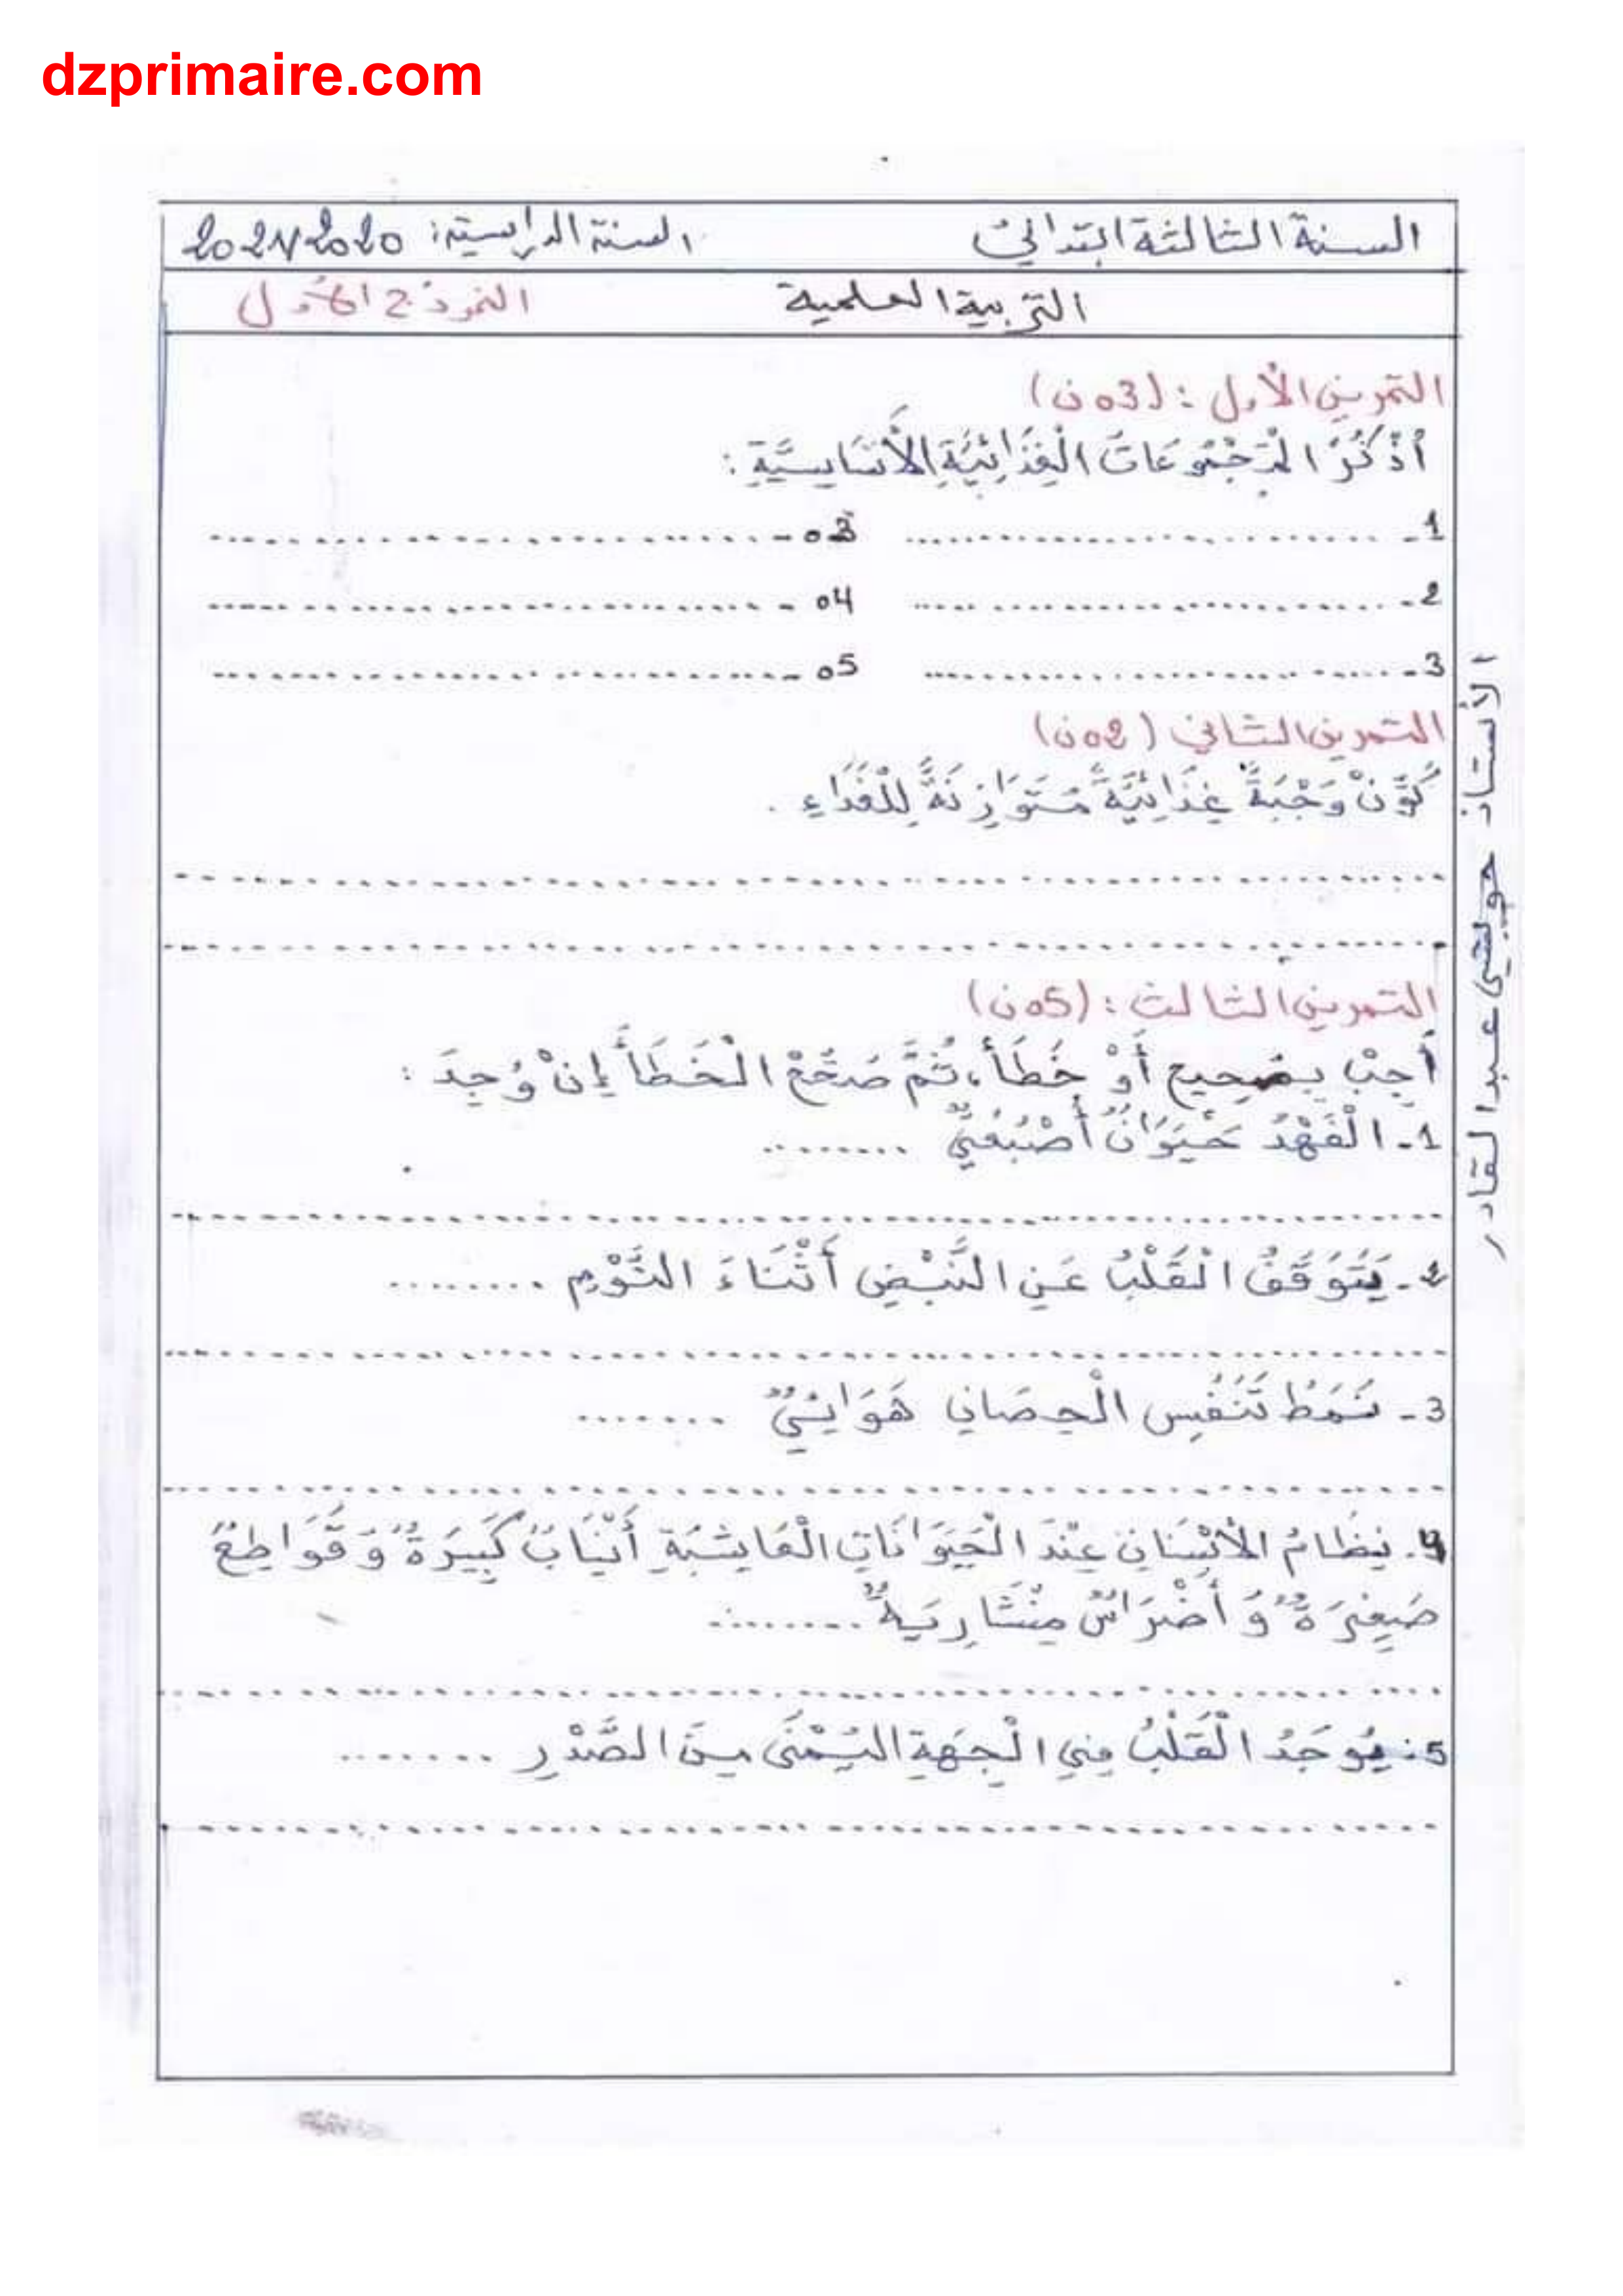 dzprimaire.com
السنة الثالثة ابتدائي السنة الدراسية: 2020/2021
التربية العلمية النموذج الأول
التمرين الأول: (03ن)
أُذْكُرُ الْمَجْمُوعَاتِ الْغِذَائِيَّةِ الْأَسَاسِيَّةِ:
1- .......................... 03 - ..........................
2- .......................... 04 - ..........................
3- .......................... 05 - ..........................
التمرين الثاني (02ن)
كَوِّنْ وَجْبَةً غِذَائِيَّةً مُتَوَازِنَةً لِلْغَدَاءِ.
..........................
..........................
التمرين الثالث: (05ن)
أَجِبْ بِصَحِيحٍ أَوْ خَطَأ، ثُمَّ صَحِّحْ الْخَطَأَ إِنْ وُجِدَ:
1- الْفَهْدُ حَيَوَانٌ أُصْبُعِيٌّ .........
..........................
2- يَتَوَقَّفُ الْقَلْبُ عَنِ النَّبْضِ أَثْنَاءَ النَّوْمِ .........
..........................
3- نَمَطُ تَنَفُّسِ الْحِصَانِ هَوَائِيٌّ ........
..........................
4. نِظَامُ الْأَسْنَانِ عِنْدَ الْحَيَوَانَاتِ الْعَاشِبَةِ أَنْيَابٌ كَبِيرَةٌ وَ قَوَاطِعٌ
صَغِيرَةٌ وَ أَضْرَاسٌ مِنْشَارِيَةٌ .........
..........................
5- يُوجَدُ الْقَلْبُ فِي الْجِهَةِ الْيُمْنَى مِنَ الصَّدْرِ ........
..........................
الأستاذ حويشي عبد القادر